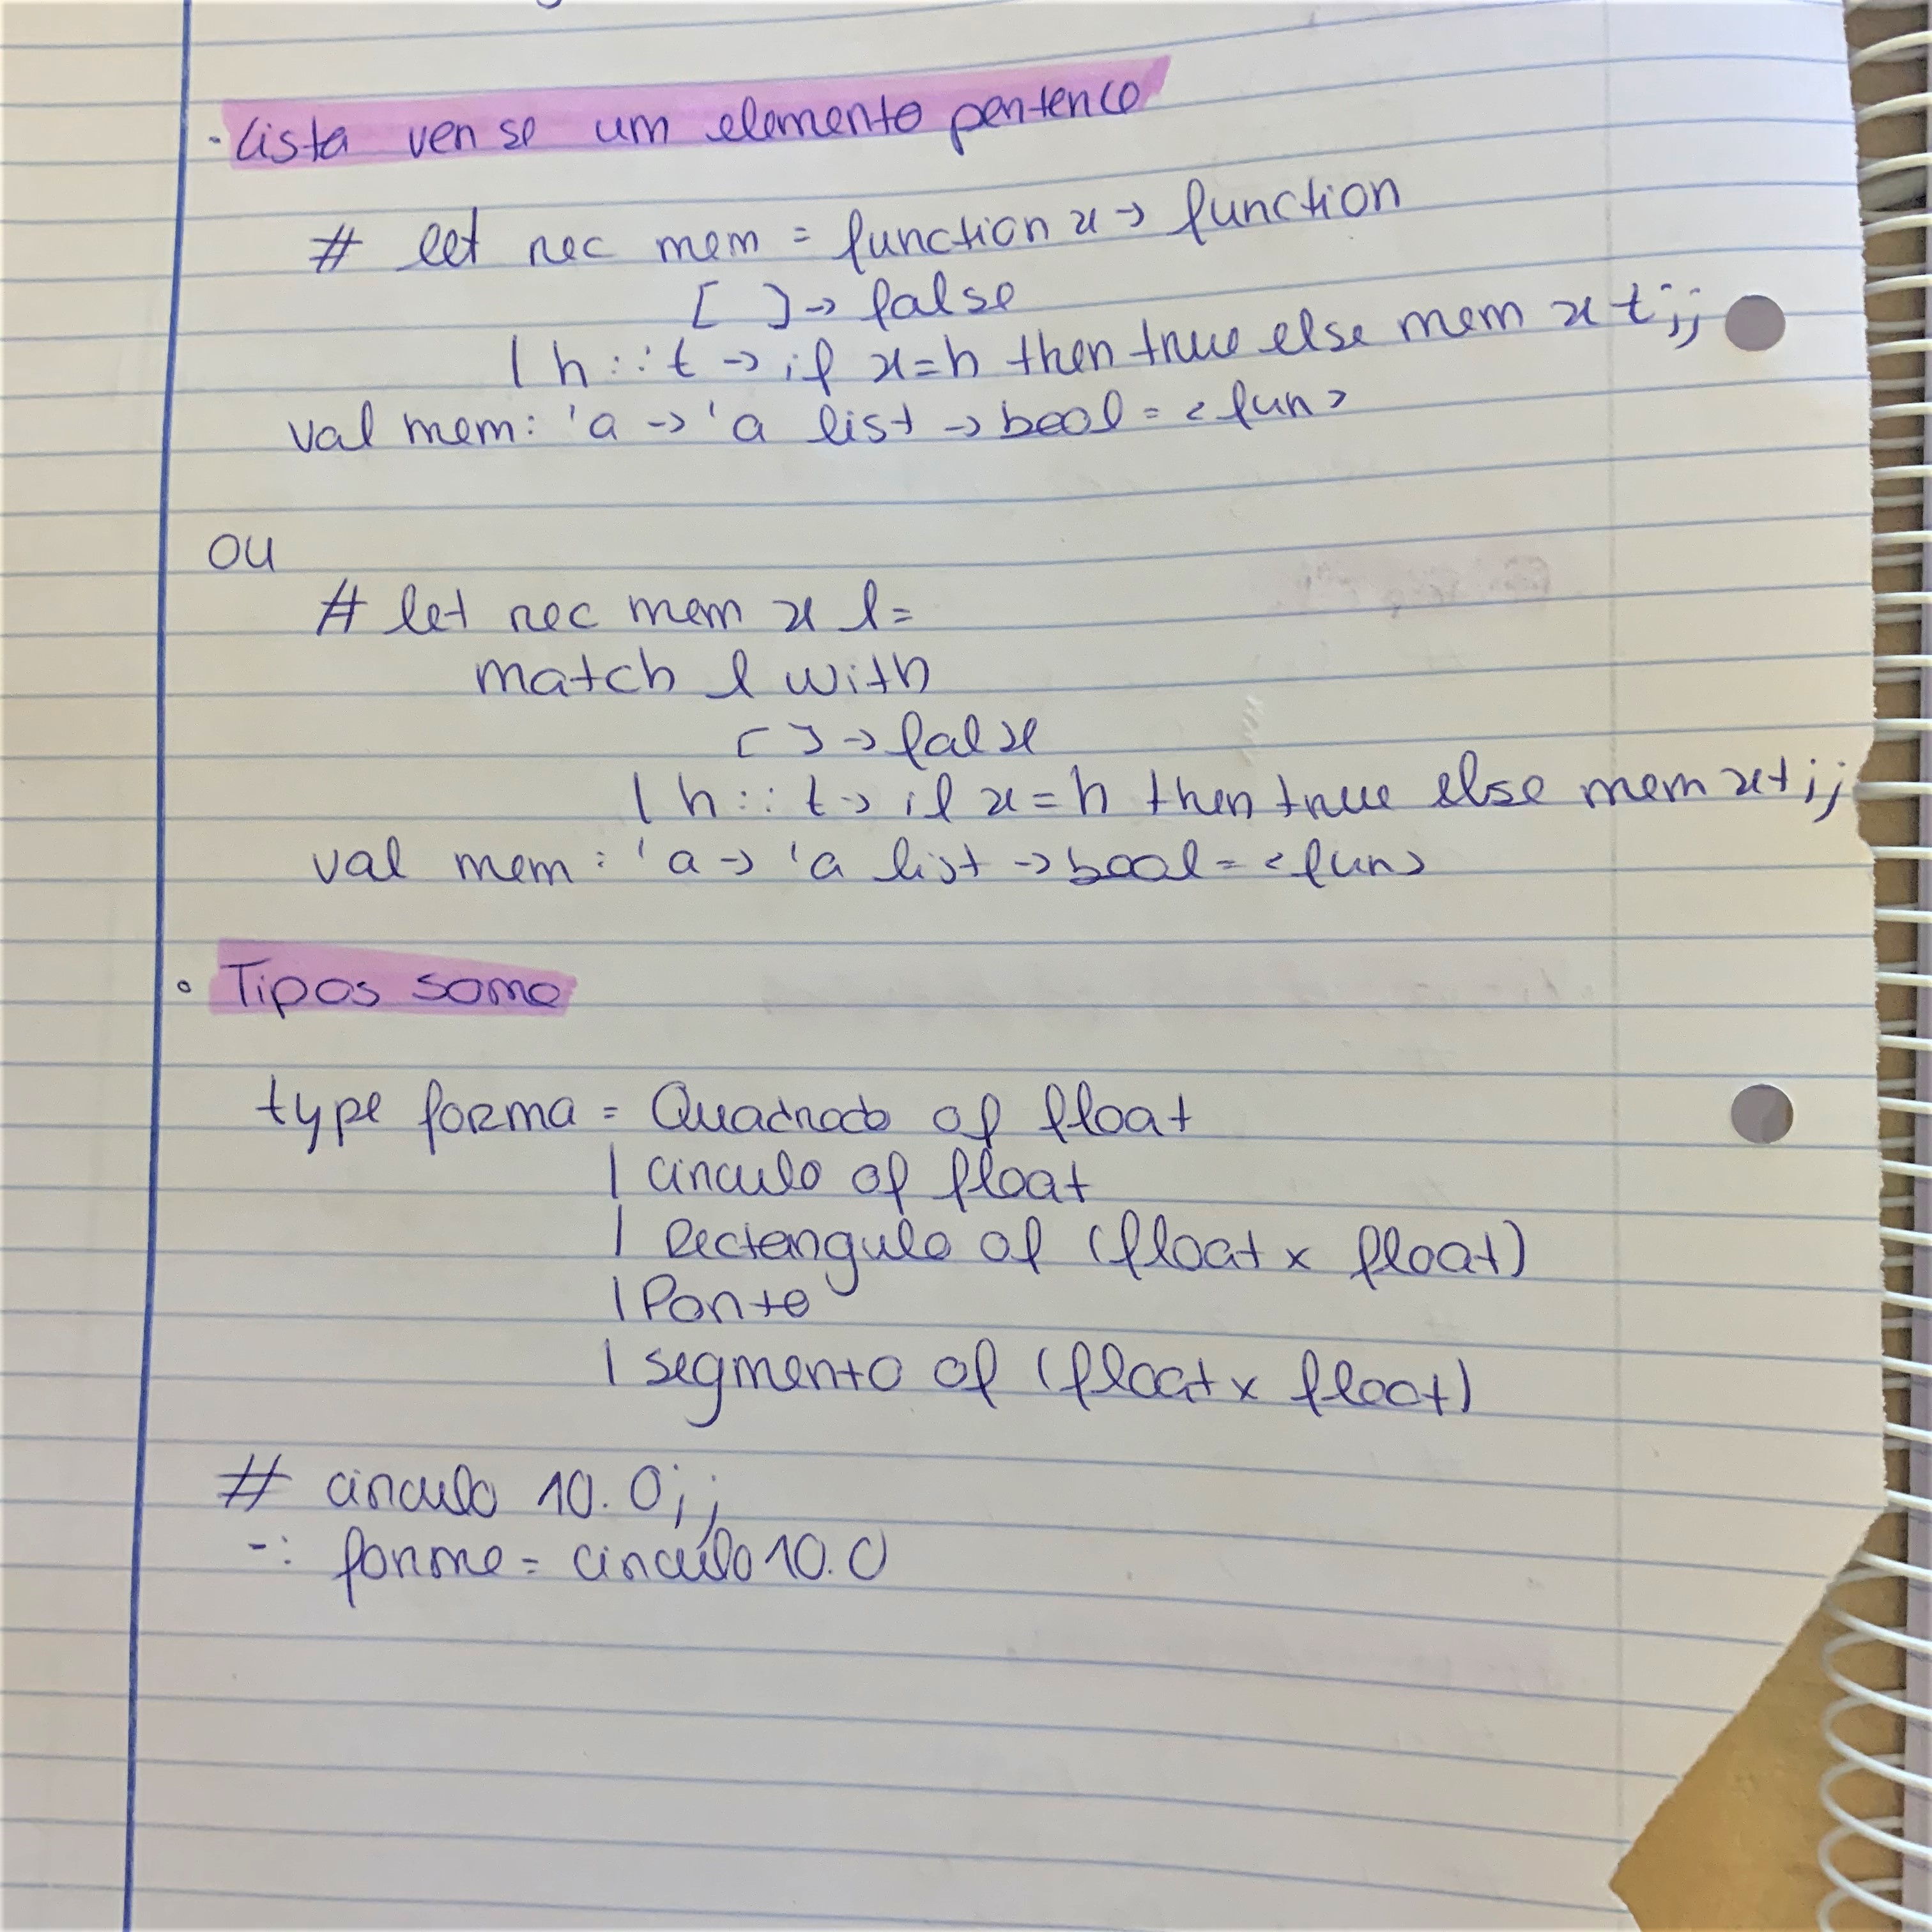 · Lista ver se um elemento pertence
# let rec mem = function x -> function
[ ] -> false
| h :: t -> if x=h then true else mem x t;;
val mem: 'a -> 'a list -> bool = <fun>
ou
# let rec mem x l=
match l with
[ ] -> false
| h :: t -> if x=h then true else mem x t;;
val mem : 'a -> 'a list -> bool = <fun>
• Tipos soma
type forma = Quadrado of float
| circulo of float
| Rectangulo of (float x float)
| Ponto
| segmento of (float x float)
# circulo 10.0;;
-: forma = circulo 10.0